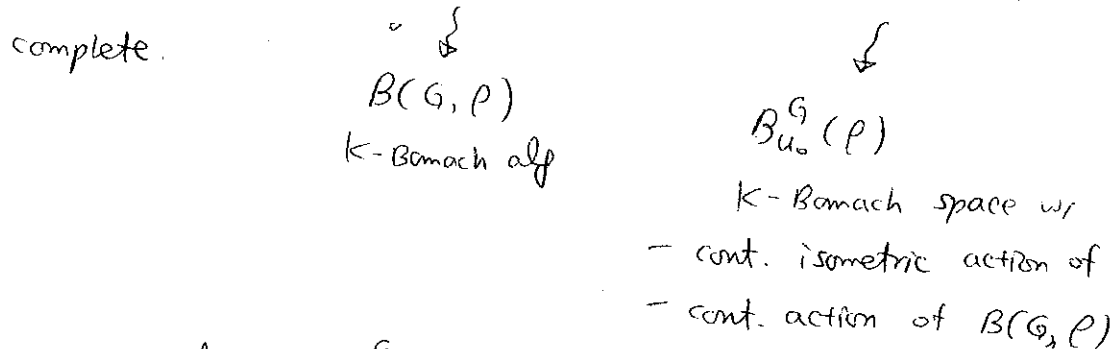 complete.
B(G, ρ)
K-Banach alg
B^G_{U_0}(ρ)
K-Banach space w/
- cont. isometric action of
- cont. action of B(G, ρ)